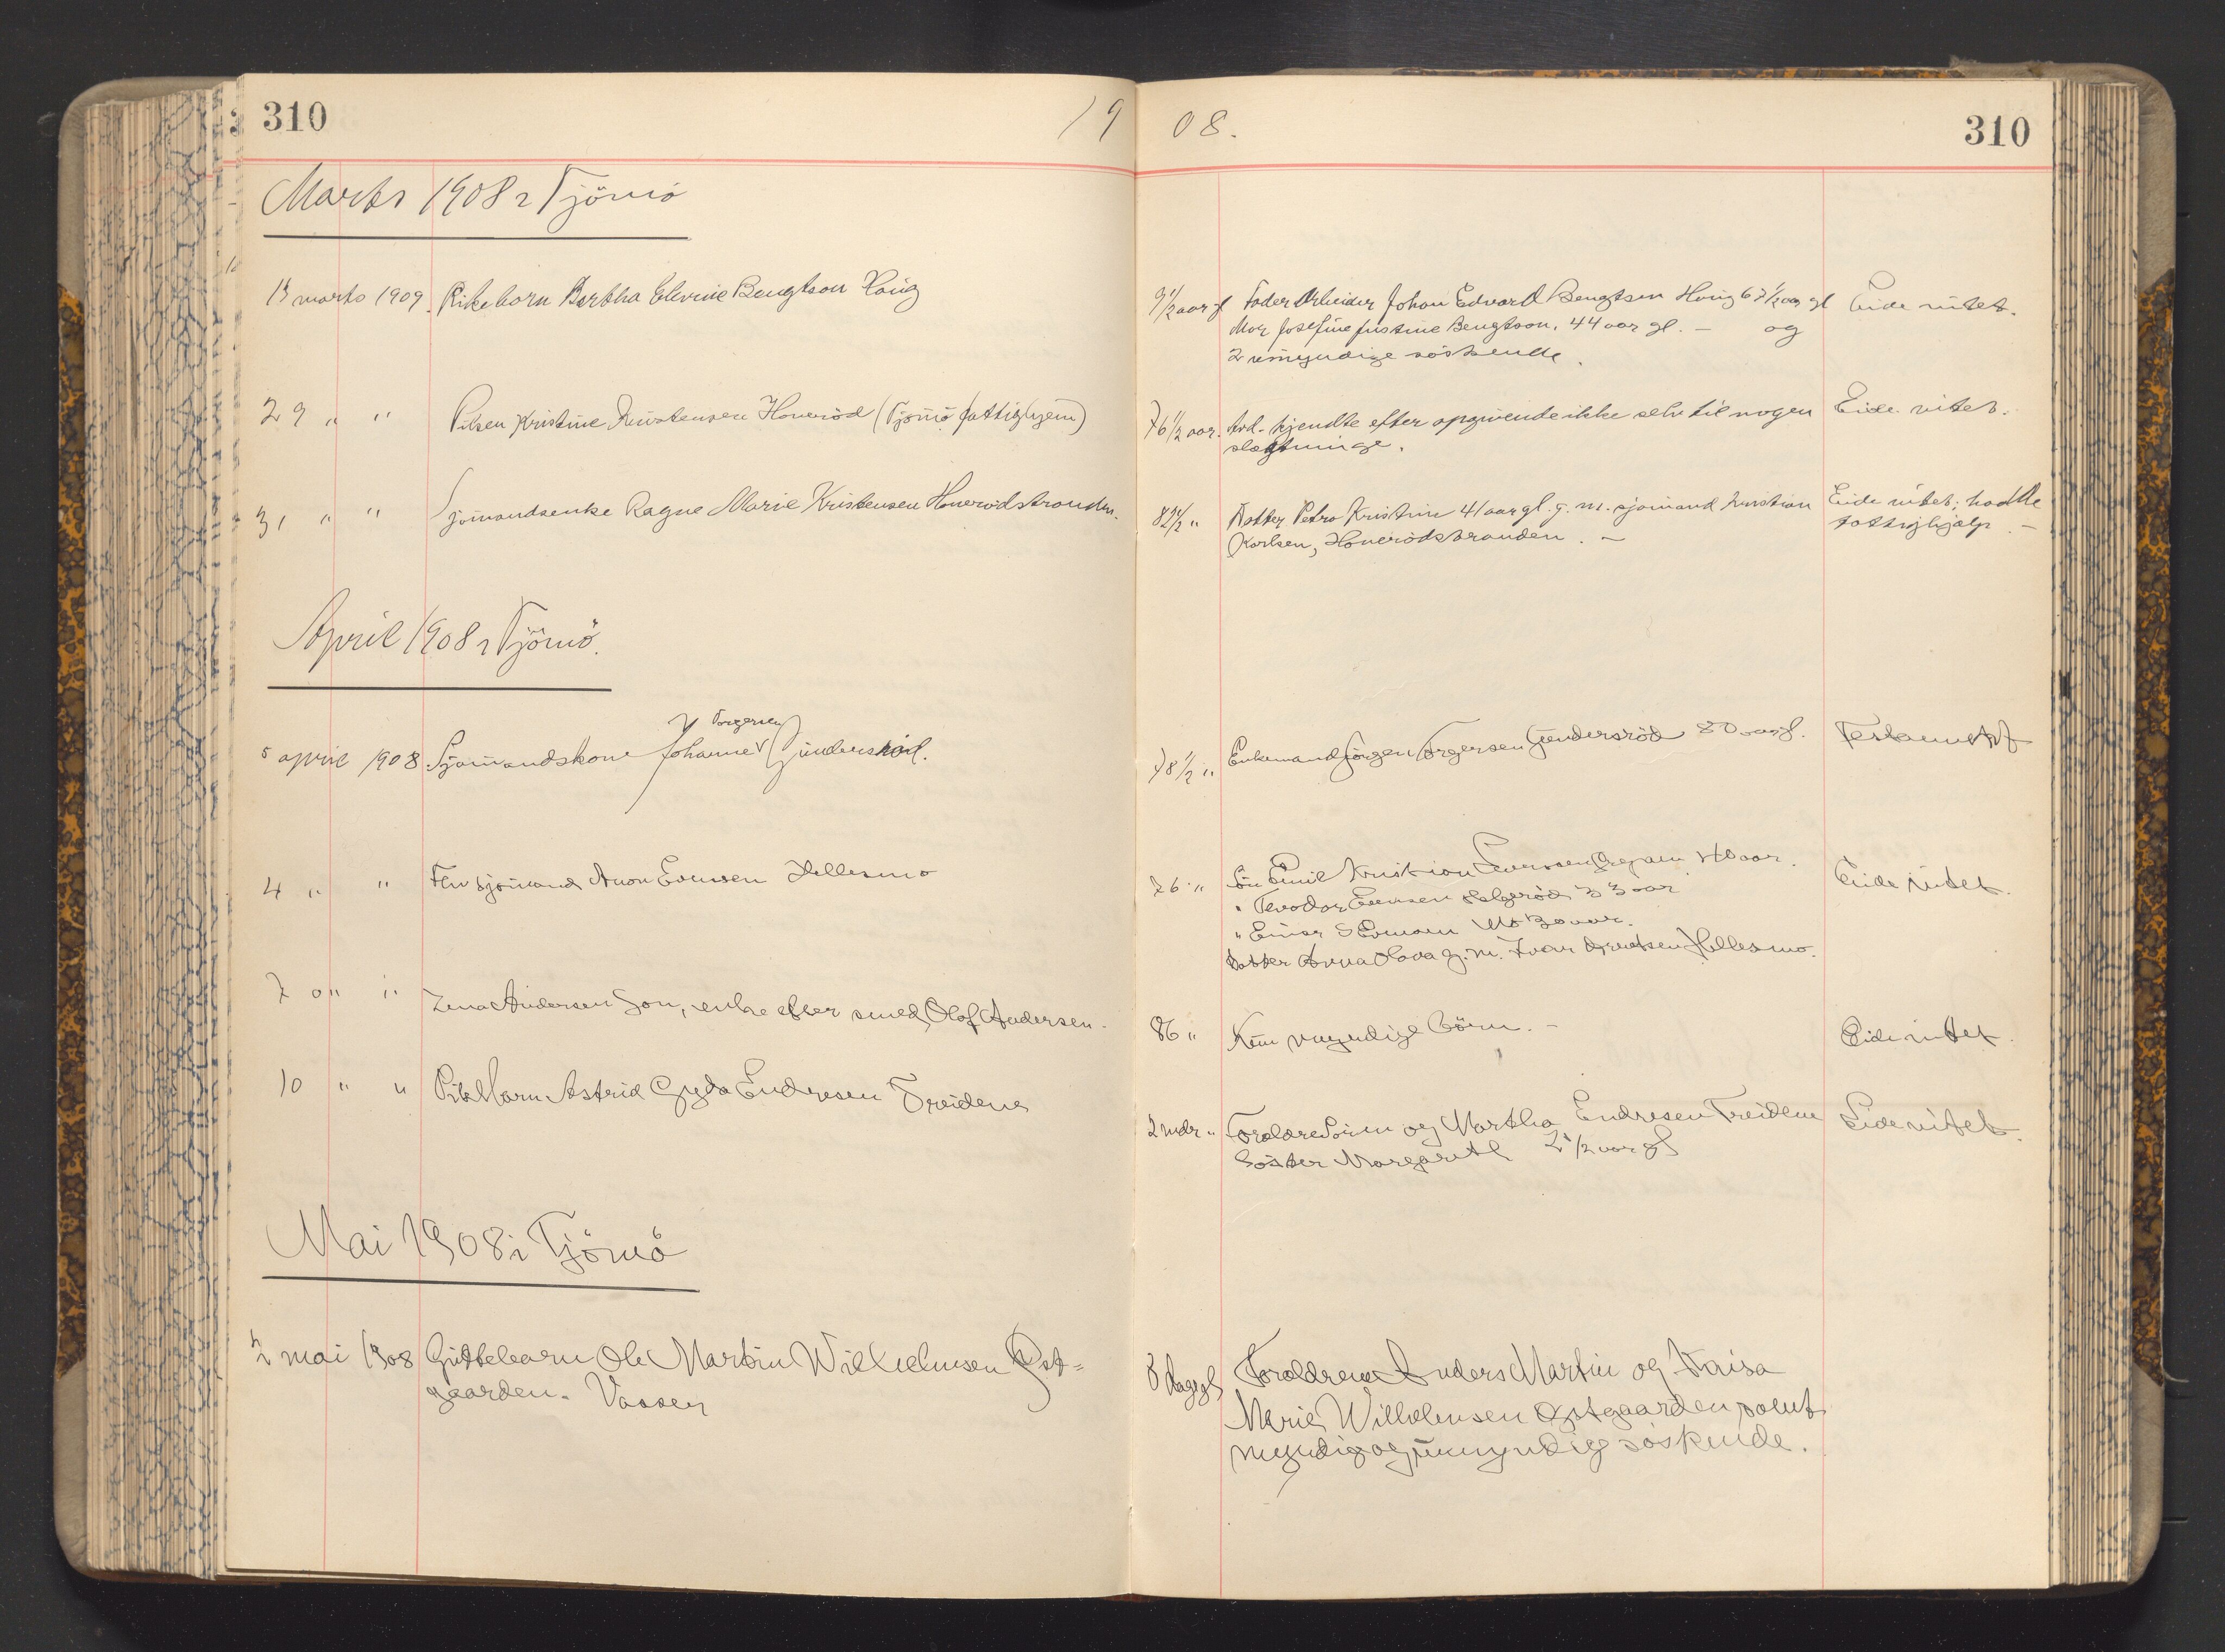 310
19 08.
310
Marts 1908 i Tjömö
13 marts 1909. Pikebarn Bertha Elevine Bengtson Haug
9 1/2 aar gl Fader Arbeider Johan Edvard Bengtsen Haug 67 1/2 aar gl
Mor Josefine Justine Bengtson, 44 aar gl. – og
2 umyndige söskende.
Eide intet.
29 " " Piken Kristine Kristensen Honeröd (Tjömö fattighjem)
76 1/2 aar. Avd. kjendte efter opgivende ikke selv til nogen
slægtninge.
Eide intet.
31 " " Sjömandsenke Ragne Marie Kristensen Honerödstranden.
82 1/2 " Datter Petra Kristine 41 aar gl. g. m. sjömand Kristian
Karlsen, Honerödstranden. –
Eide intet; hadde
fattighjælp –
April 1908 i Tjömö.
5 april 1908 Sjömandskone Johanne Torgersen Gundersröd.
78 1/2 " Enkemand Jörgen Torgersen Gundersröd 80 aar gl.
Testament
4 " " Fhv sjömand Aron Evensen Hellesmo
76 " Sön Emil Kristian Evensen 40 aar.
" Teodor Evensen Helgeröd 33 aar
" Einar S Evensen Mo 30 aar.
Datter Anna Olava g. m. Ivar Hellesmo.
Eide intet.
7 " " Lena Andersen Son, enke efter smed Olaf Andersen.
86 " Kun myndige börn. –
Eide intet.
10 " " Pikebarn Astrid Gyda Endresen Treidene
2 mdr " Forældre Sören og Martha Endresen Treidene
Söster Margareth 2 1/2 aar gl
Eide intet.
Mai 1908 i Tjömö
2 mai 1908 Guttebarn Ole Martin Wilhelmsen Öst=
gaarden. Vassen
8 dage gl Forældrene Anders Martin og
Marie Wilhelmsen Östgaarden samt
myndig og umyndig söskende.